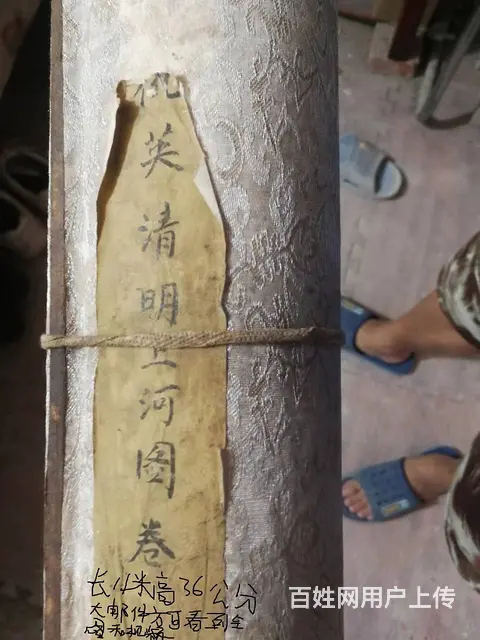 仇英清明上河图卷
长11米高36公分
大邮件
百姓网用户上传